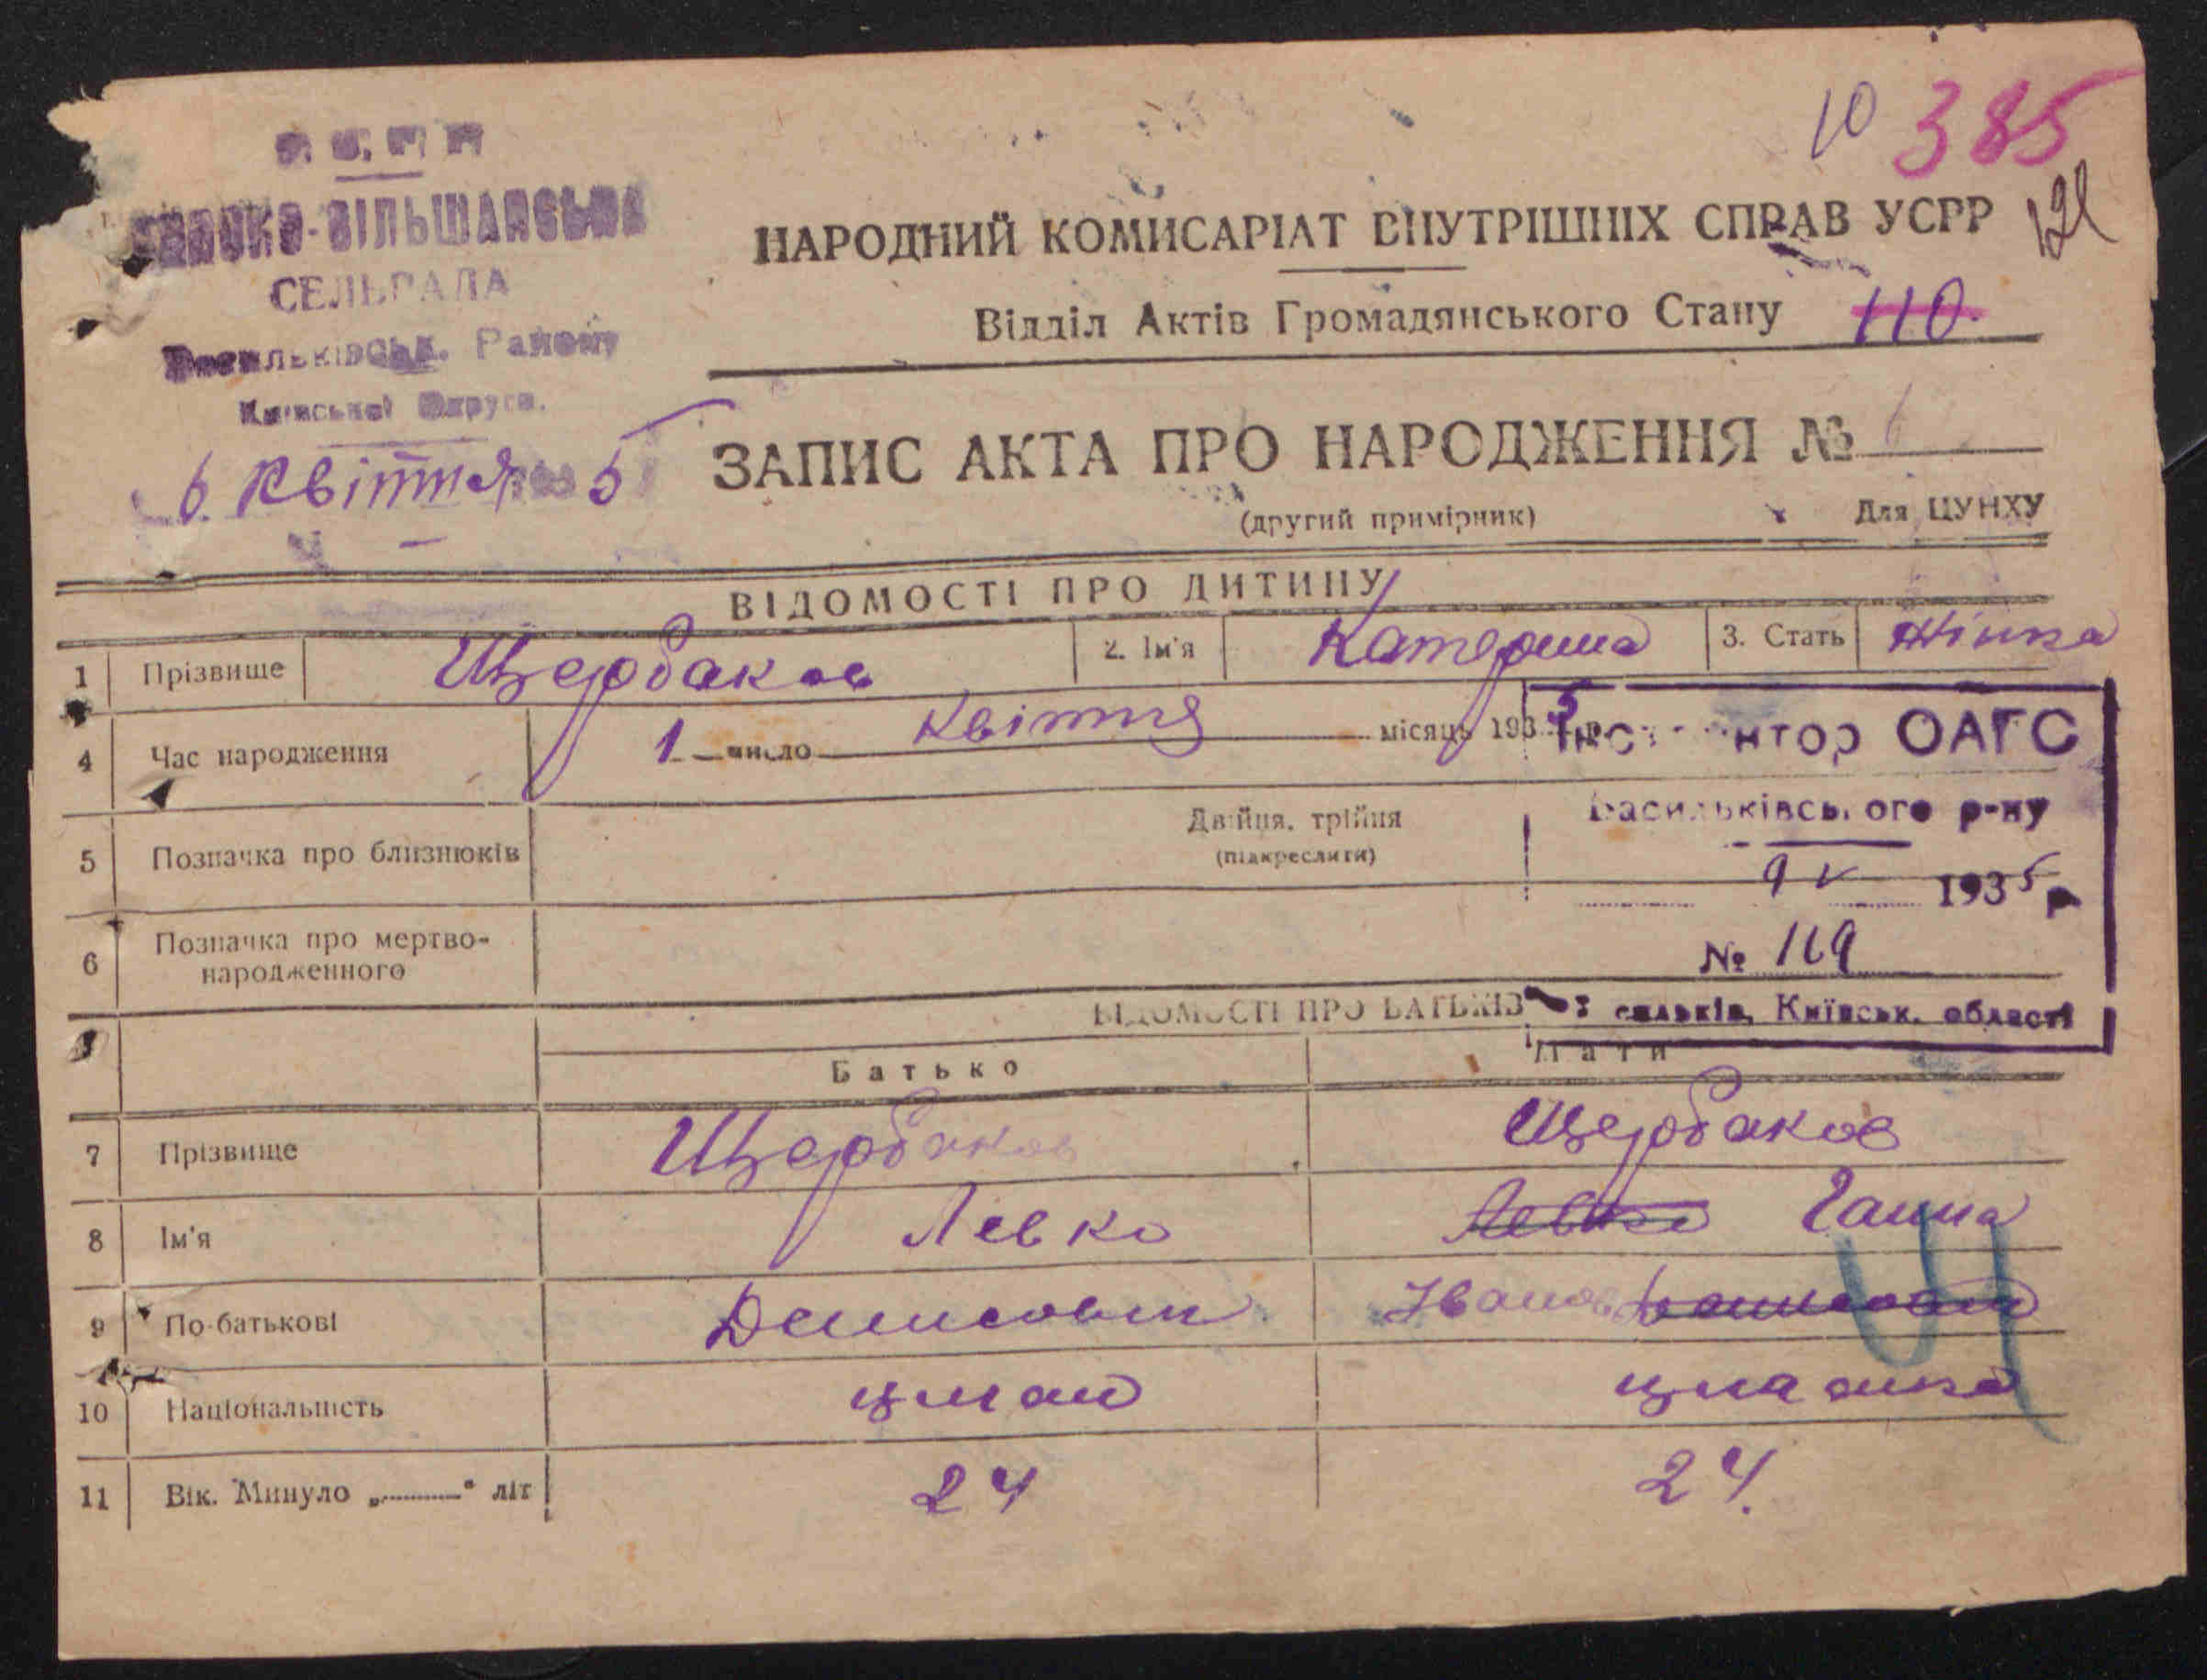 10 385
У.С.Р.Р.
-ВІЛЬШАНСЬКА
СЕЛЬРАДА
Васильківськ. Району
Київської Округи.
6. Квітня 1935
НАРОДНИЙ КОМИСАРІАТ ВНУТРІШНІХ СПРАВ УСРР
Відділ Актів Громадянського Стану 110.
ЗАПИС АКТА ПРО НАРОДЖЕННЯ №
(другий примірник) Для ЦУНХУ
ВІДОМОСТІ ПРО ДИТИНУ
1 Прізвище Щербаков 2. Ім'я Катерина 3. Стать Жінка
4 Час народження 1 число Квітня місяць 1935 р.
Інспектор ОАГС
Васильківського р-ну
9 V 1935 р
№ 119
м. Васильків, Київськ. області
5 Позначка про близнюків Двійня, трійня
(підкреслити)
6 Позначка про мертво-
народженного
ВІДОМОСТІ ПРО БАТЬКІВ
Батько Мати
7 Прізвище Щербаков Щербаков
8 Ім'я Левко Левко Ганна
9 По-батькові Денисович Іванов Денисович
10 Національність
11 Вік. Минуло „ " літ 24 24.